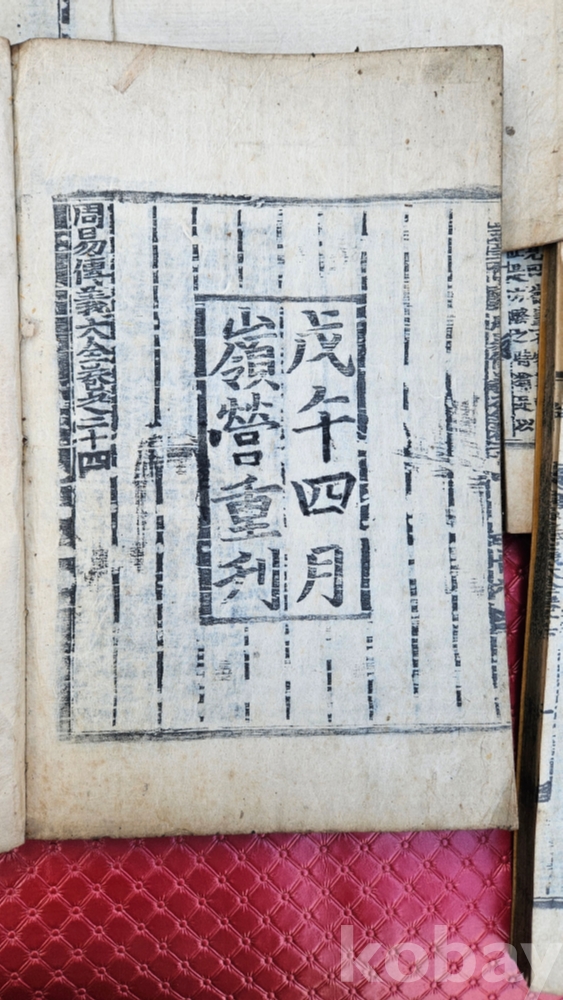 戊午四月
嶺營重刊
周易傳義大全卷之二十四
kobay